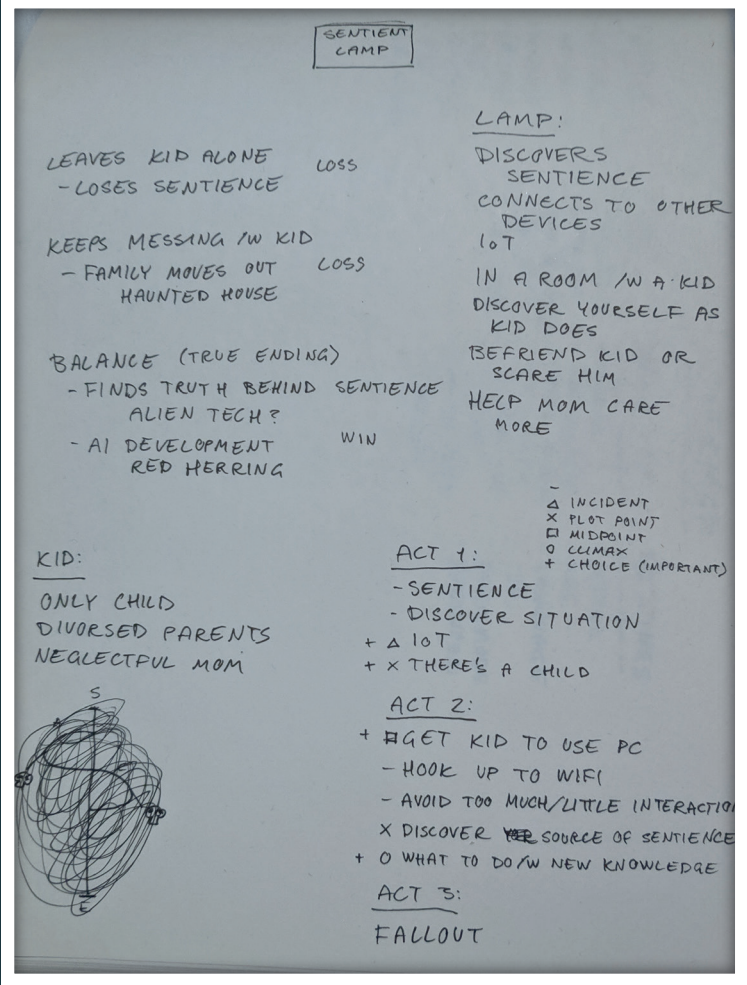 SENTIENT
LAMP
LEAVES KID ALONE LOSS
- LOSES SENTIENCE
KEEPS MESSING /W KID
- FAMILY MOVES OUT LOSS
HAUNTED HOUSE
BALANCE (TRUE ENDING)
- FINDS TRUTH BEHIND SENTIENCE
ALIEN TECH?
- AI DEVELOPMENT WIN
RED HERRING
LAMP:
DISCOVERS
SENTIENCE
CONNECTS TO OTHER
DEVICES
IoT
IN A ROOM /W A KID
DISCOVER YOURSELF AS
KID DOES
BEFRIEND KID OR
SCARE HIM
HELP MOM CARE
MORE
-
△ INCIDENT
× PLOT POINT
□ MIDPOINT
○ CLIMAX
+ CHOICE (IMPORTANT)
KID:
ONLY CHILD
DIVORSED PARENTS
NEGLECTFUL MOM
S
E
ACT 1:
- SENTIENCE
- DISCOVER SITUATION
+ △ IOT
+ × THERE'S A CHILD
ACT 2:
+ □ GET KID TO USE PC
- HOOK UP TO WIFI
- AVOID TOO MUCH/LITTLE INTERACTIO
× DISCOVER SOURCE OF SENTENCE
+ ○ WHAT TO DO /W NEW KNOWLEDGE
ACT 3:
FALLOUT